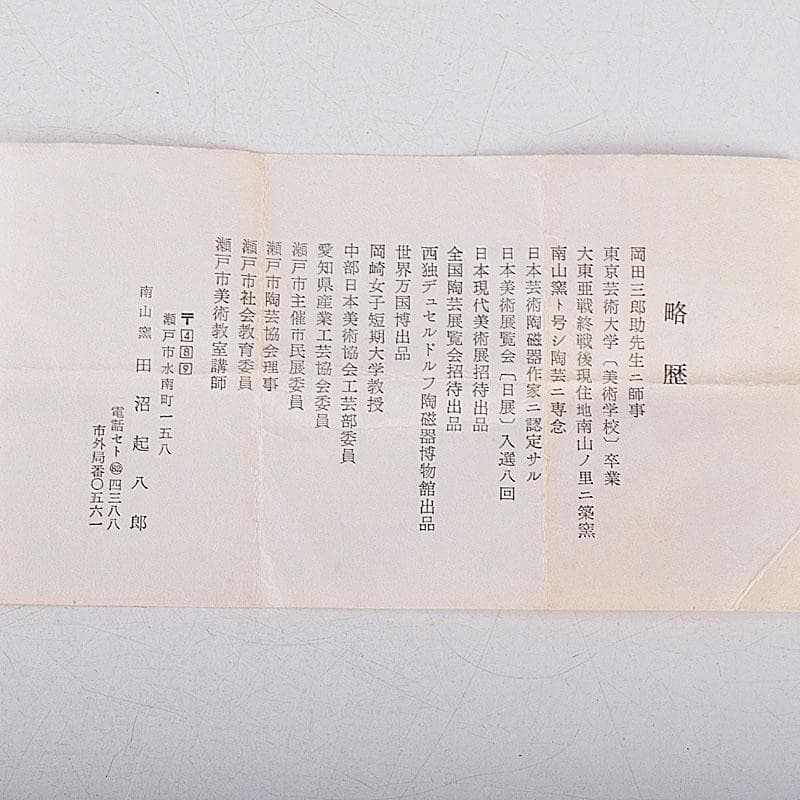 略歴
岡田三郎助先生ニ師事
東京芸術大学〔美術学校〕卒業
大東亜戦終戦後現住地南山ノ里ニ築窯
南山窯ト号シ陶芸ニ専念
日本芸術陶磁器作家ニ認定サル
日本美術展覧会〔日展〕入選八回
日本現代美術展招待出品
全国陶芸展覧会招待出品
西独デュセルドルフ陶磁器博物館出品
世界万国博出品
岡崎女子短期大学教授
中部日本美術協会工芸部委員
愛知県産業工芸協会委員
瀬戸市主催市民展委員
瀬戸市陶芸協会理事
瀬戸市社会教育委員
瀬戸市美術教室講師
〒489
瀬戸市水南町一五八
南山窯 田沼起八郎
電話セト㊇四三八八
市外局番〇五六一